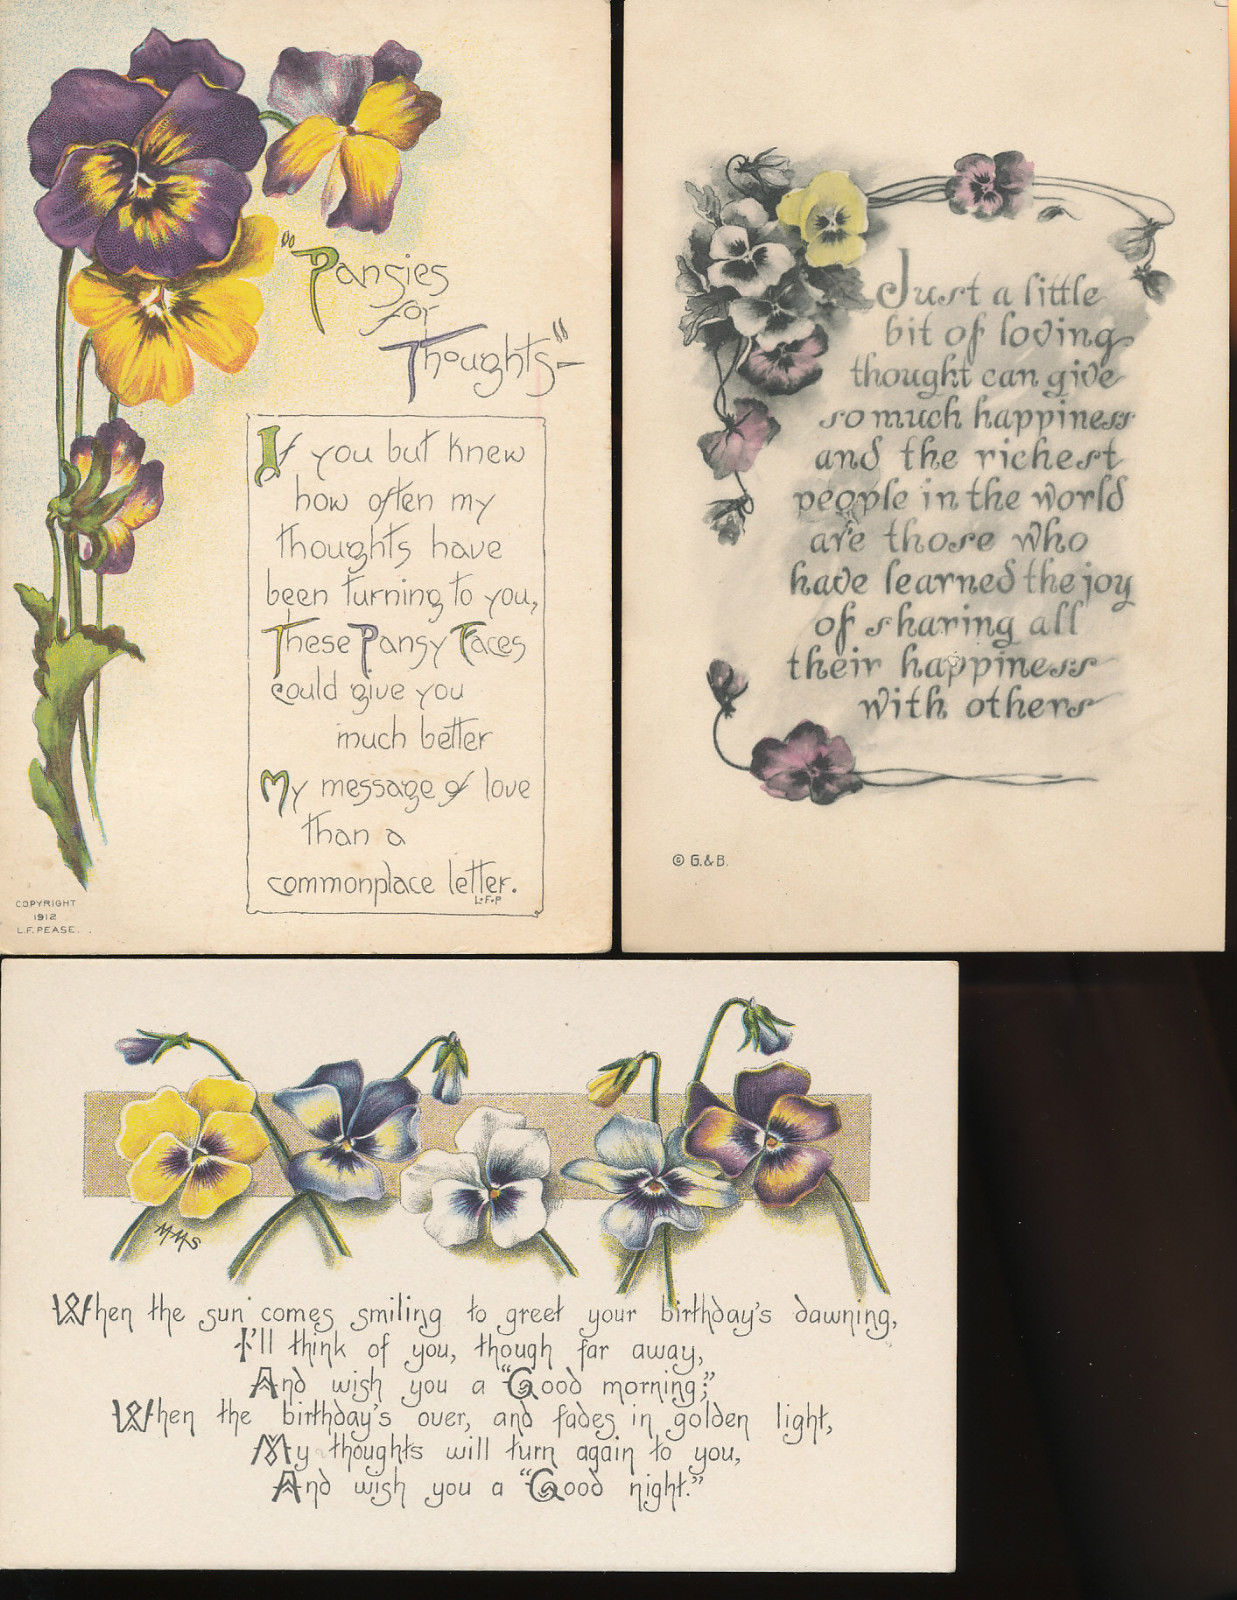 "Pansies
for
Thoughts"—
If you but knew
how often my
thoughts have
been turning to you,
These Pansy Faces
could give you
much better
My message of love
than a
commonplace letter.
L·F·P
COPYRIGHT
1912
L.F. PEASE.
Just a little
bit of loving
thought can give
so much happiness
and the richest
people in the world
are those who
have learned the joy
of sharing all
their happiness
with others
© G.&B.
M·M·S
When the sun comes smiling to greet your birthday's dawning,
I'll think of you, though far away,
And wish you a "Good morning;"
When the birthday's over, and fades in golden light,
My thoughts will turn again to you,
And wish you a "Good night."